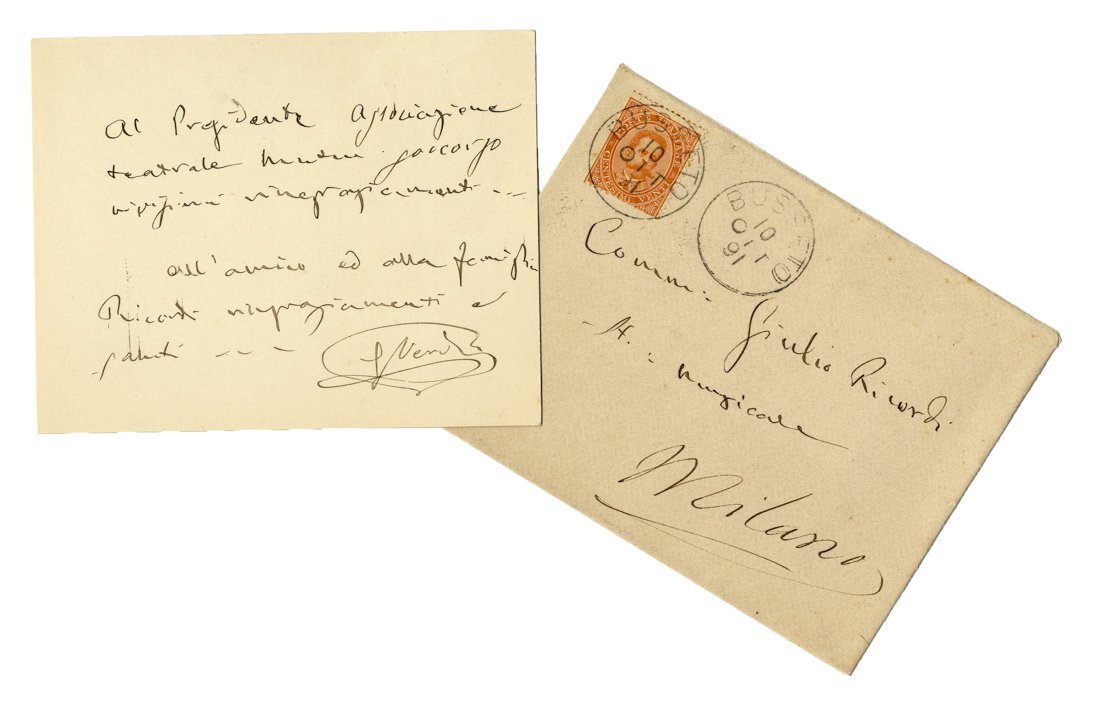 Al Presidente Associazione
teatrale mutuo soccorso
vivissimi ringraziamenti ---
all'amico ed alla famiglia
Ricordi ringraziamenti e
saluti - - -
G Verdi
POSTE ITALIANE
CENTESIMI VENTI
BUSSETO
10
BUSSETO
10
OTT
91
Comm: Giulio Ricordi
musicale
Milano